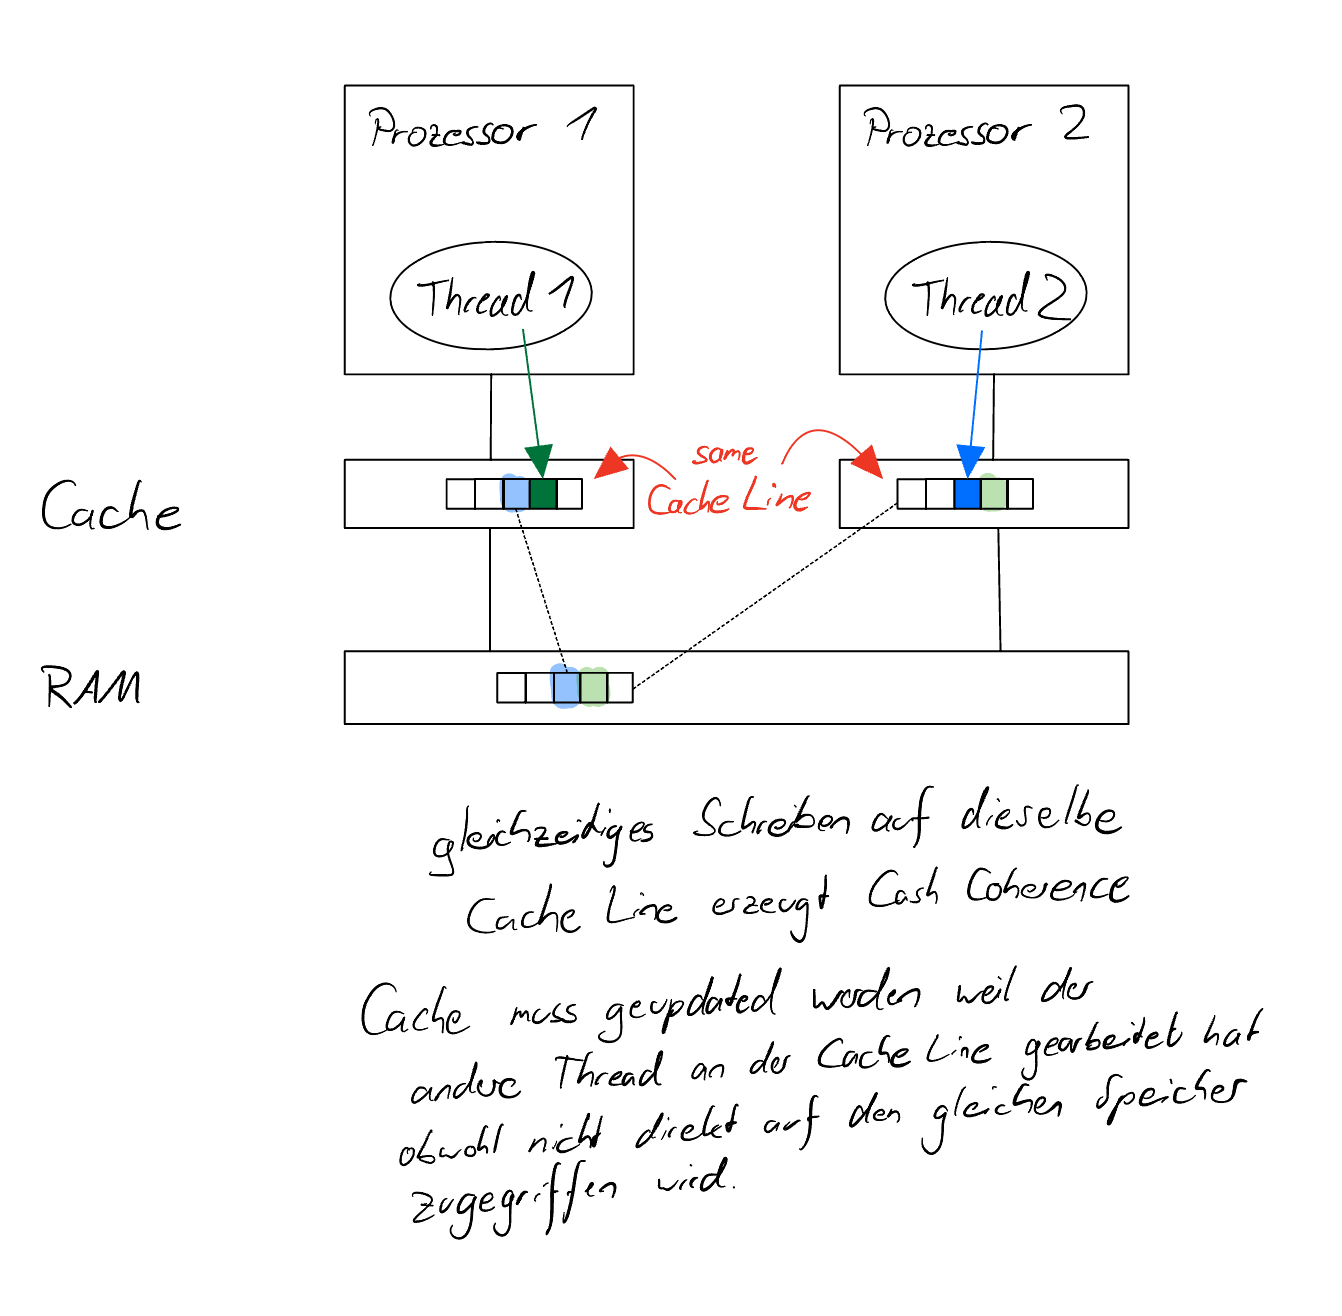 Prozessor 1
Prozessor 2
Thread 1
Thread 2
same
Cache Line
Cache
RAM
gleichzeitiges Schreiben auf dieselbe
Cache Line erzeugt Cash Coherence
Cache muss geupdated werden weil der
andere Thread an der Cache Line gearbeitet hat
obwohl nicht direkt auf den gleichen Speicher
zugegriffen wird.